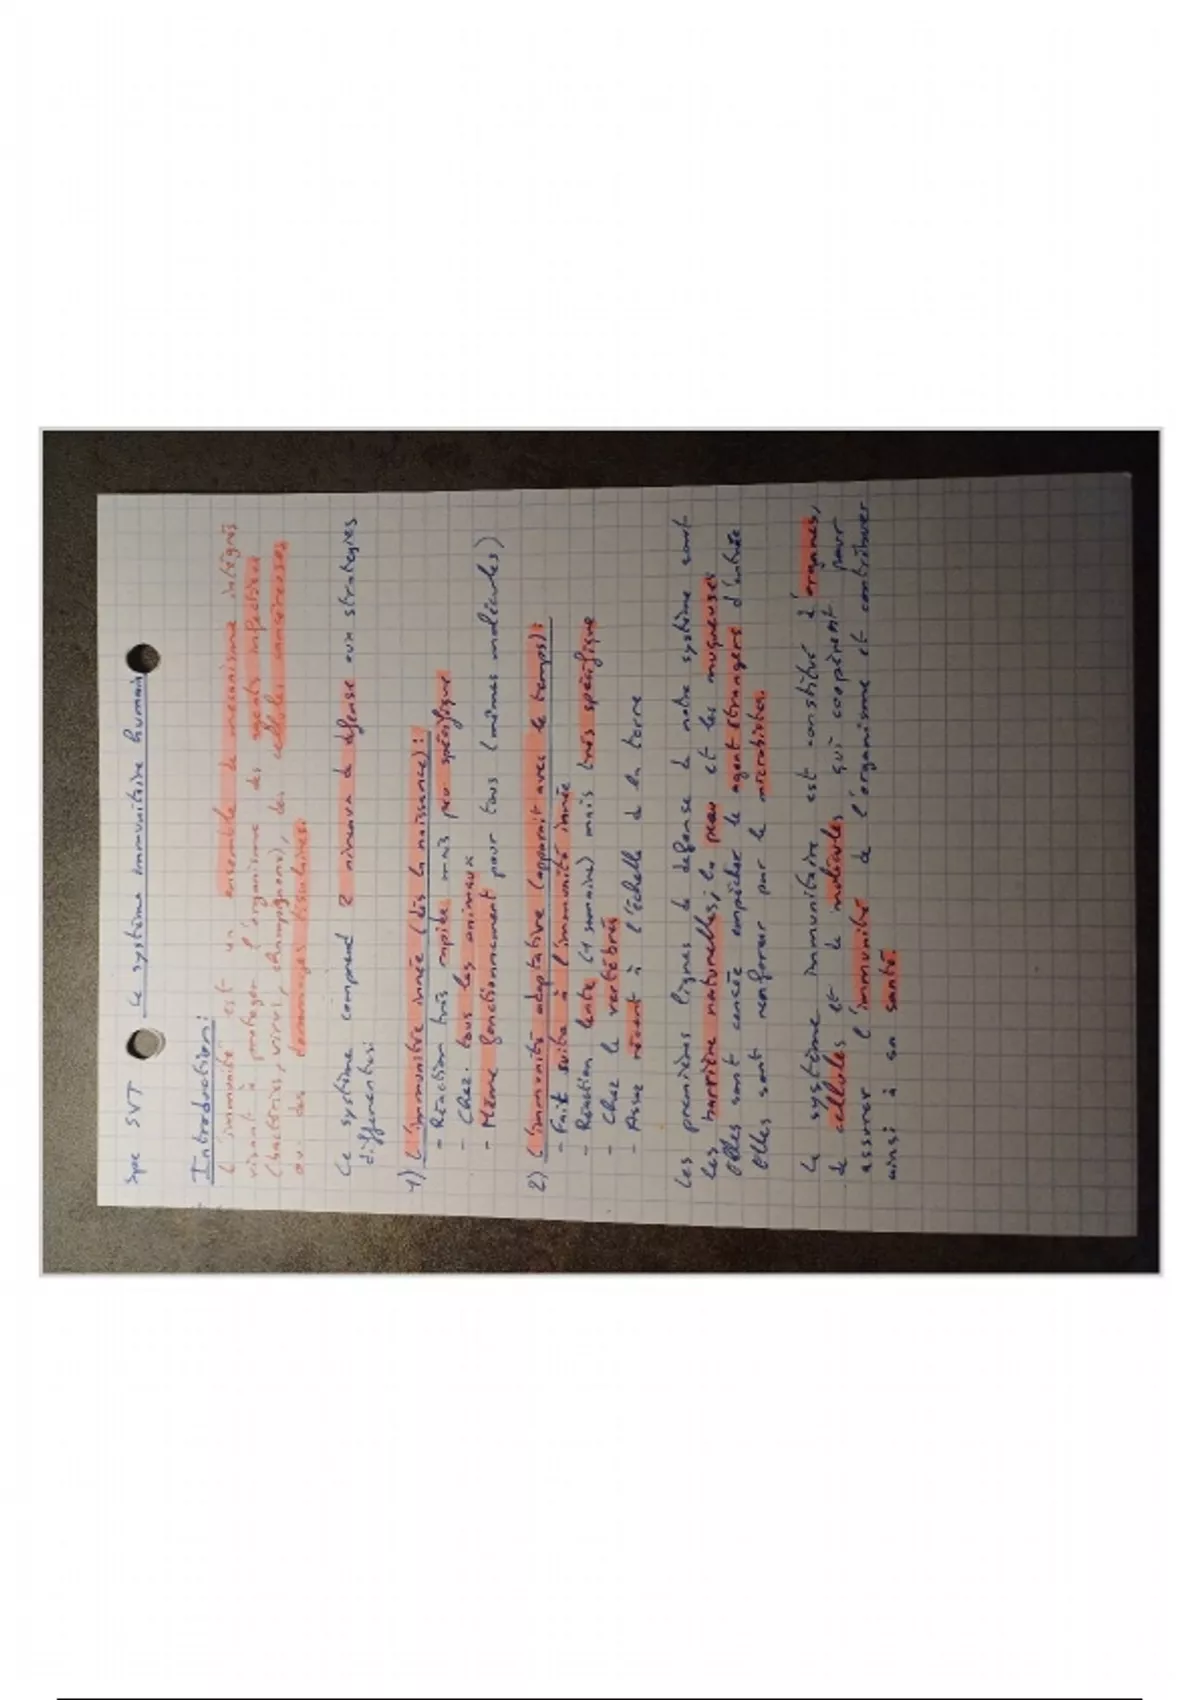 Spé SVT Le système immunitaire humain
Introduction:
L'immunité est un ensemble de mécanisme intégrés
visant à protéger l'organisme des agents infectieux
(bactéries, virus, champignons), des cellules cancéreuses
ou des dommages tissulaires.
Le système comprend 2 niveaux de défense aux stratégies
différentes:
1) L'immunité innée (dès la naissance):
- Réaction très rapide mais peu spécifique
- Chez tous les animaux
- Même fonctionnement pour tous (mêmes molécules)
2) L'immunité adaptative (apparait avec le temps):
- Fait suite à l'immunité innée
- Réaction lente (1 semaine) mais très spécifique
- Chez le vertébrés
- Assez récent à l'échelle de la terre
Les premières lignes de défense de notre système sont
les barrière naturelles; la peau et les muqueuses
Elles sont censée empêcher le agent étrangers d'entrée
Elles sont renforcer par le microbiotes.
Le système immunitaire est constitué d'organes,
de cellules et de molécules qui coopèrent pour
assurer l'immunité de l'organisme et contribuer
ainsi à sa santé.